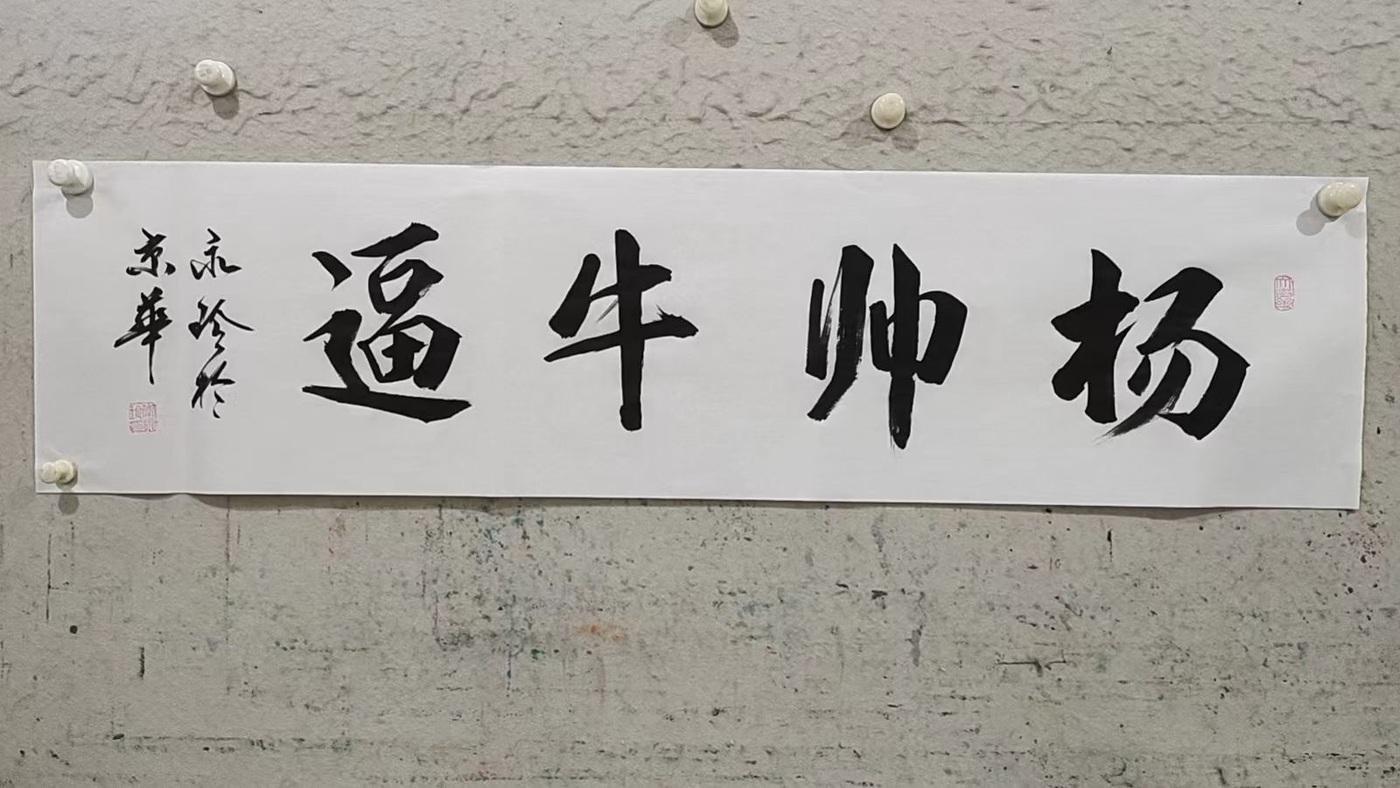 杨帅牛逼
永珍於
京華